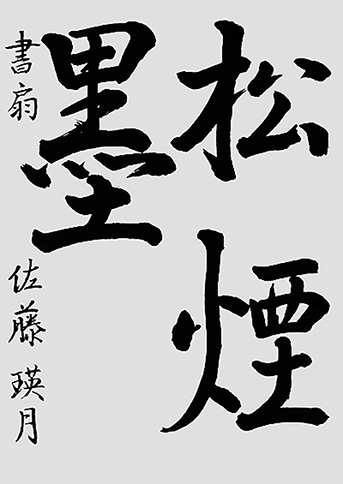 松煙
墨
書扇 佐藤瑛月